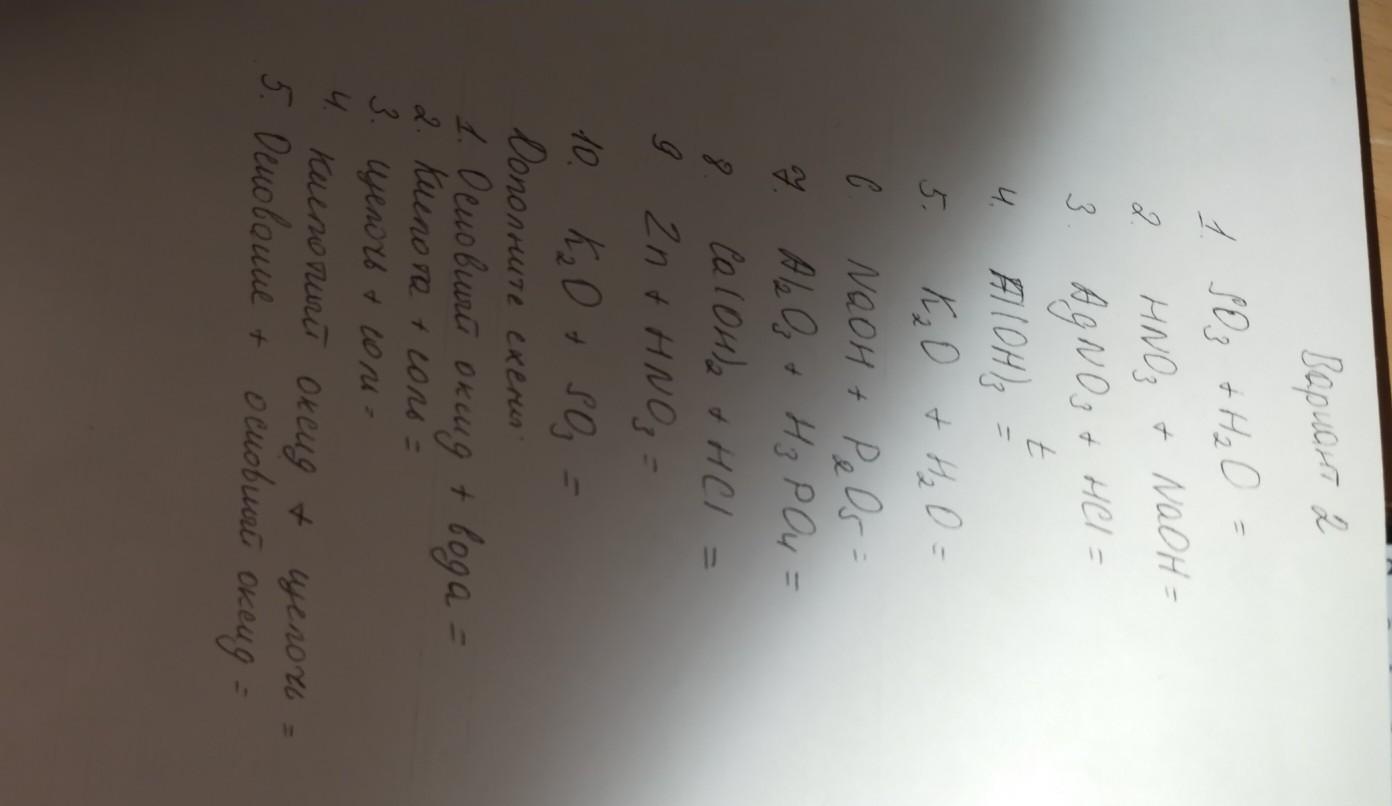 Вариант 2
1. SO₃ + H₂O =
2. HNO₃ + NaOH =
3. AgNO₃ + HCl =
4. Al(OH)₃ =ᵗ
5. K₂O + H₂O =
6. NaOH + P₂O₅ =
7. Al₂O₃ + H₃PO₄ =
8. Ca(OH)₂ + HCl =
9 Zn + HNO₃ =
10. K₂O + SO₃ =
Дополните схемы:
1. Основный оксид + вода =
2. Кислота + соль =
3. щелочь + соль =
4. кислотный оксид + щелочь =
5. Основание + основный оксид =